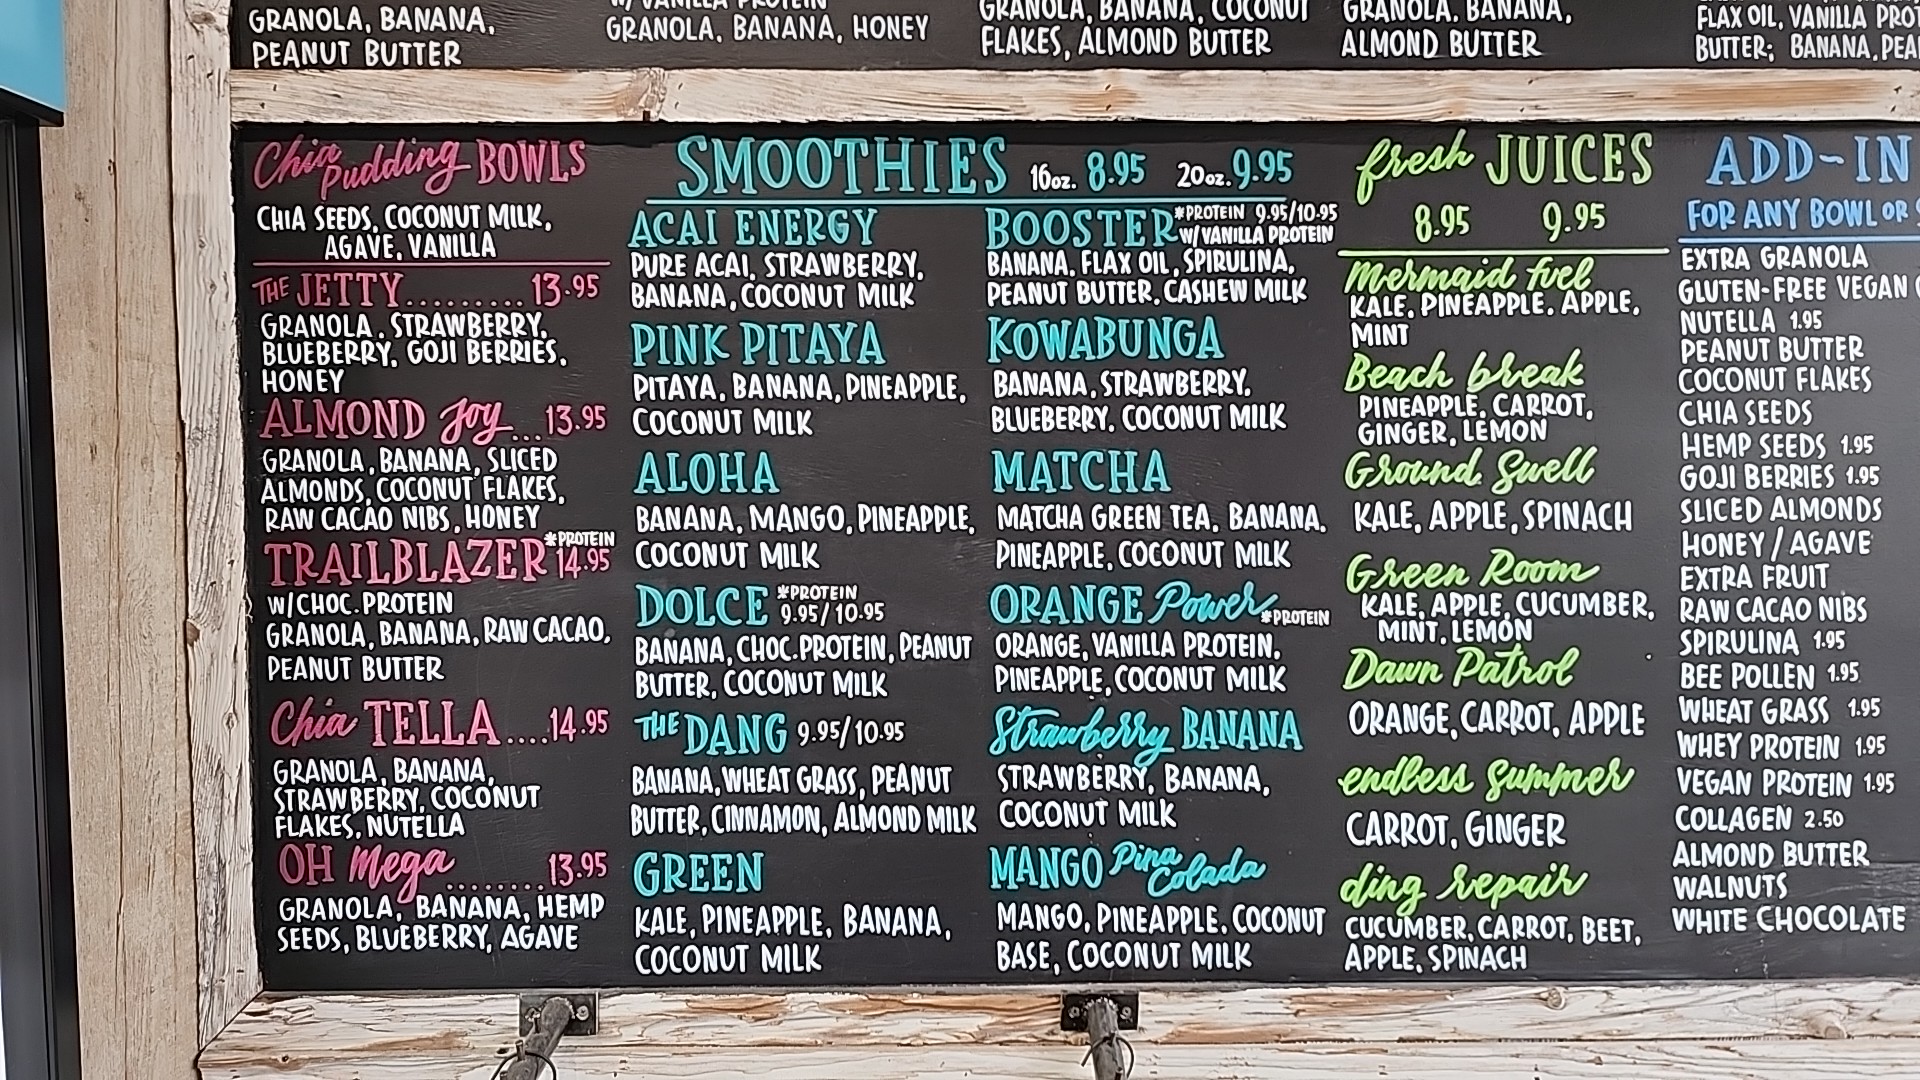 GRANOLA, BANANA,
PEANUT BUTTER
W/ VANILLA PROTEIN
GRANOLA, BANANA, HONEY
GRANOLA, BANANA, COCONUT
FLAKES, ALMOND BUTTER
GRANOLA, BANANA,
ALMOND BUTTER
FLAX OIL, VANILLA
BUTTER; BANANA,
Chia Pudding BOWLS
CHIA SEEDS, COCONUT MILK,
AGAVE, VANILLA
THE JETTY......... 13.95
GRANOLA, STRAWBERRY,
BLUEBERRY, GOJI BERRIES,
HONEY
ALMOND Joy...13.95
GRANOLA, BANANA, SLICED
ALMONDS, COCONUT FLAKES,
RAW CACAO NIBS, HONEY
*PROTEIN
TRAILBLAZER 14.95
W/CHOC. PROTEIN
GRANOLA, BANANA, RAW CACAO,
PEANUT BUTTER
Chia TELLA....14.95
GRANOLA, BANANA,
STRAWBERRY, COCONUT
FLAKES, NUTELLA
OH Mega........13.95
GRANOLA, BANANA, HEMP
SEEDS, BLUEBERRY, AGAVE
SMOOTHIES 16oz. 8.95 20oz. 9.95
ACAI ENERGY
PURE ACAI, STRAWBERRY,
BANANA, COCONUT MILK
PINK PITAYA
PITAYA, BANANA, PINEAPPLE,
COCONUT MILK
ALOHA
BANANA, MANGO, PINEAPPLE,
COCONUT MILK
DOLCE *PROTEIN
9.95/10.95
BANANA, CHOC. PROTEIN, PEANUT
BUTTER, COCONUT MILK
THE DANG 9.95/10.95
BANANA, WHEAT GRASS, PEANUT
BUTTER, CINNAMON, ALMOND MILK
GREEN
KALE, PINEAPPLE, BANANA,
COCONUT MILK
BOOSTER *PROTEIN 9.95/10.95
W/VANILLA PROTEIN
BANANA, FLAX OIL, SPIRULINA,
PEANUT BUTTER, CASHEW MILK
KOWABUNGA
BANANA, STRAWBERRY,
BLUEBERRY, COCONUT MILK
MATCHA
MATCHA GREEN TEA, BANANA,
PINEAPPLE, COCONUT MILK
ORANGE Power *PROTEIN
ORANGE, VANILLA PROTEIN,
PINEAPPLE, COCONUT MILK
Strawberry BANANA
STRAWBERRY, BANANA,
COCONUT MILK
MANGO Pina Colada
MANGO, PINEAPPLE, COCONUT
BASE, COCONUT MILK
fresh JUICES
8.95 9.95
Mermaid fuel
KALE, PINEAPPLE, APPLE,
MINT
Beach break
PINEAPPLE, CARROT,
GINGER, LEMON
Ground Swell
KALE, APPLE, SPINACH
Green Room
KALE, APPLE, CUCUMBER,
MINT, LEMON
Dawn Patrol
ORANGE, CARROT, APPLE
endless summer
CARROT, GINGER
ding repair
CUCUMBER, CARROT, BEET,
APPLE, SPINACH
ADD-IN
FOR ANY BOWL OR
EXTRA GRANOLA
GLUTEN-FREE VEGAN
NUTELLA 1.95
PEANUT BUTTER
COCONUT FLAKES
CHIA SEEDS
HEMP SEEDS 1.95
GOJI BERRIES 1.95
SLICED ALMONDS
HONEY / AGAVE
EXTRA FRUIT
RAW CACAO NIBS
SPIRULINA 1.95
BEE POLLEN 1.95
WHEAT GRASS 1.95
WHEY PROTEIN 1.95
VEGAN PROTEIN 1.95
COLLAGEN 2.50
ALMOND BUTTER
WALNUTS
WHITE CHOCOLATE